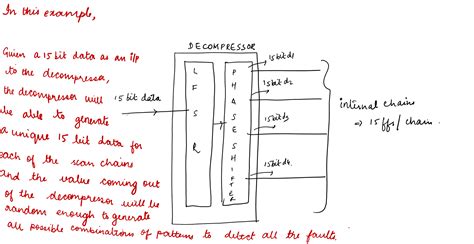 In this example,
Given a 15 bit data as an i/p
to the decompressor,
the decompressor will
be able to generate
a unique 15 bit data for
each of the scan chains
and the value coming out
of the decompressor will be
random enough to generate
all possible combinations of patterns to detect all the faults.
DECOMPRESSOR
15 bit data
LFSR
PHASE SHIFTER
15bit d1
15bit d2
15bit d3
15bit d4
internal chains
⇒ 15 ffs/chain.